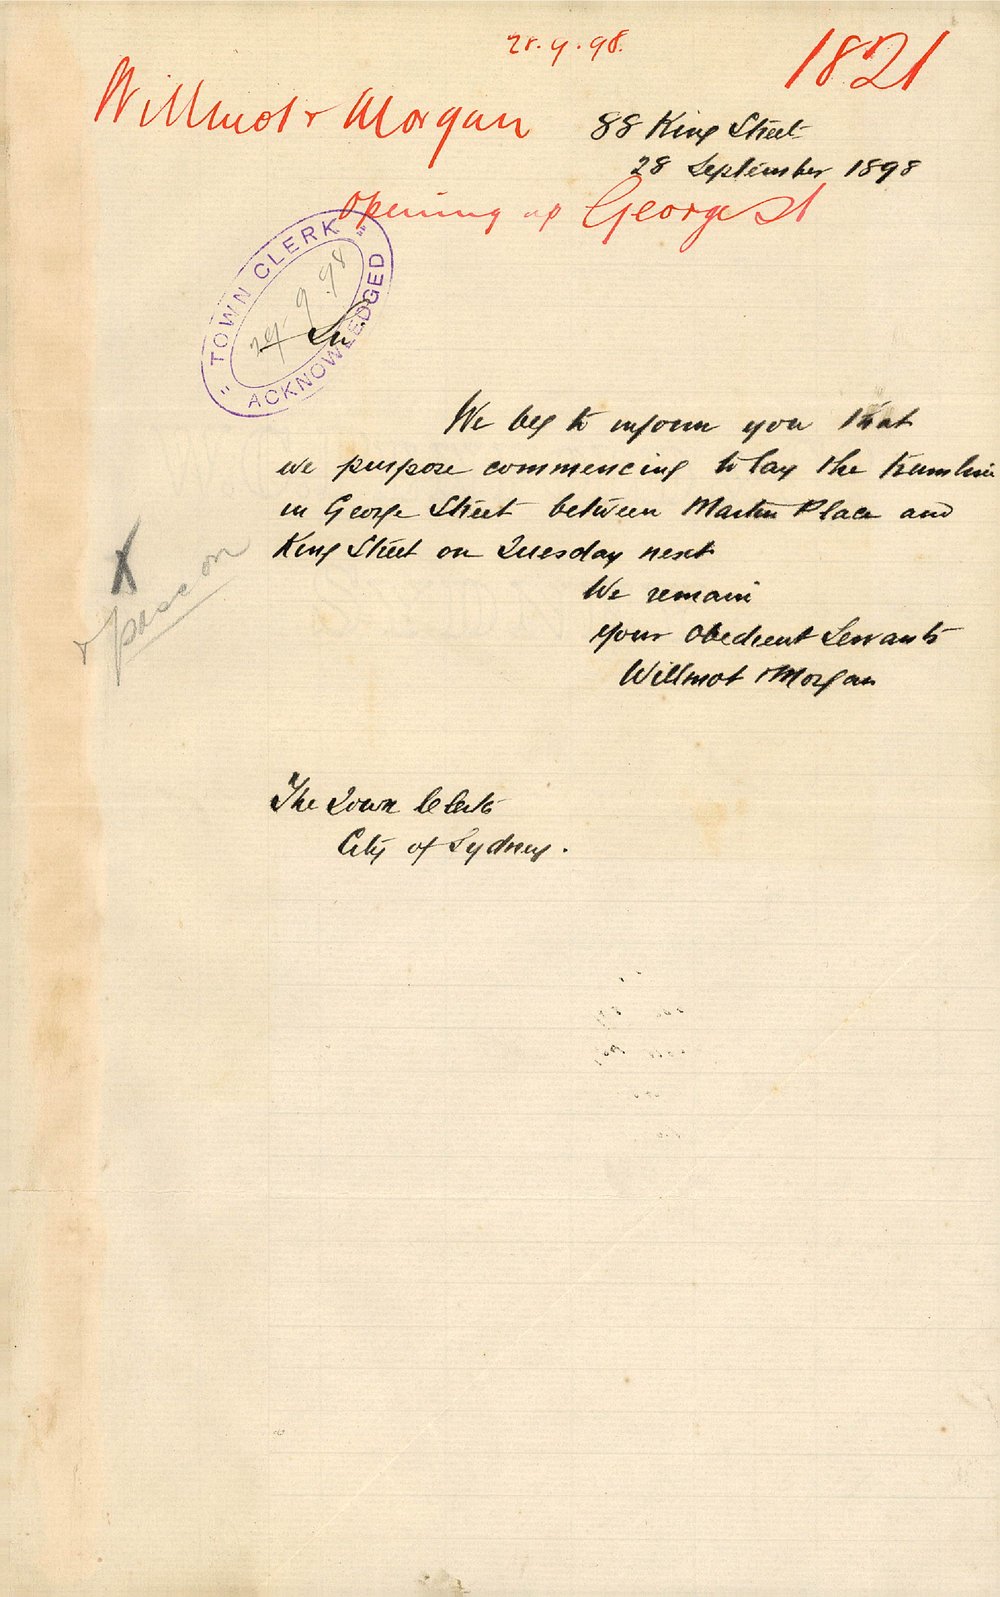 28.9.98.
1821
Willmot & Morgan
88 King Street
28 September 1898
Opening up George St
"TOWN CLERK"
29.9.98
ACKNOWLEDGED
Sir
We beg to inform you that
we purpose commencing to lay the tramline
in George Street between Martin Place and
King Street on Tuesday next
X
& pase on
We remain
your Obedient Servants
Willmot & Morgan
The Town Clerk
City of Sydney.